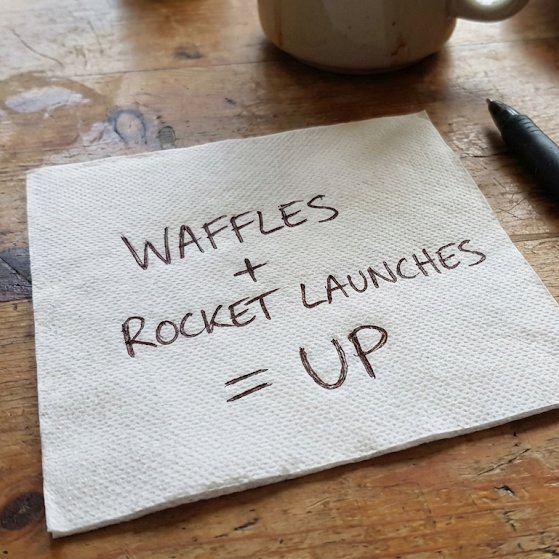 WAFFLES
+
ROCKET LAUNCHES
= UP